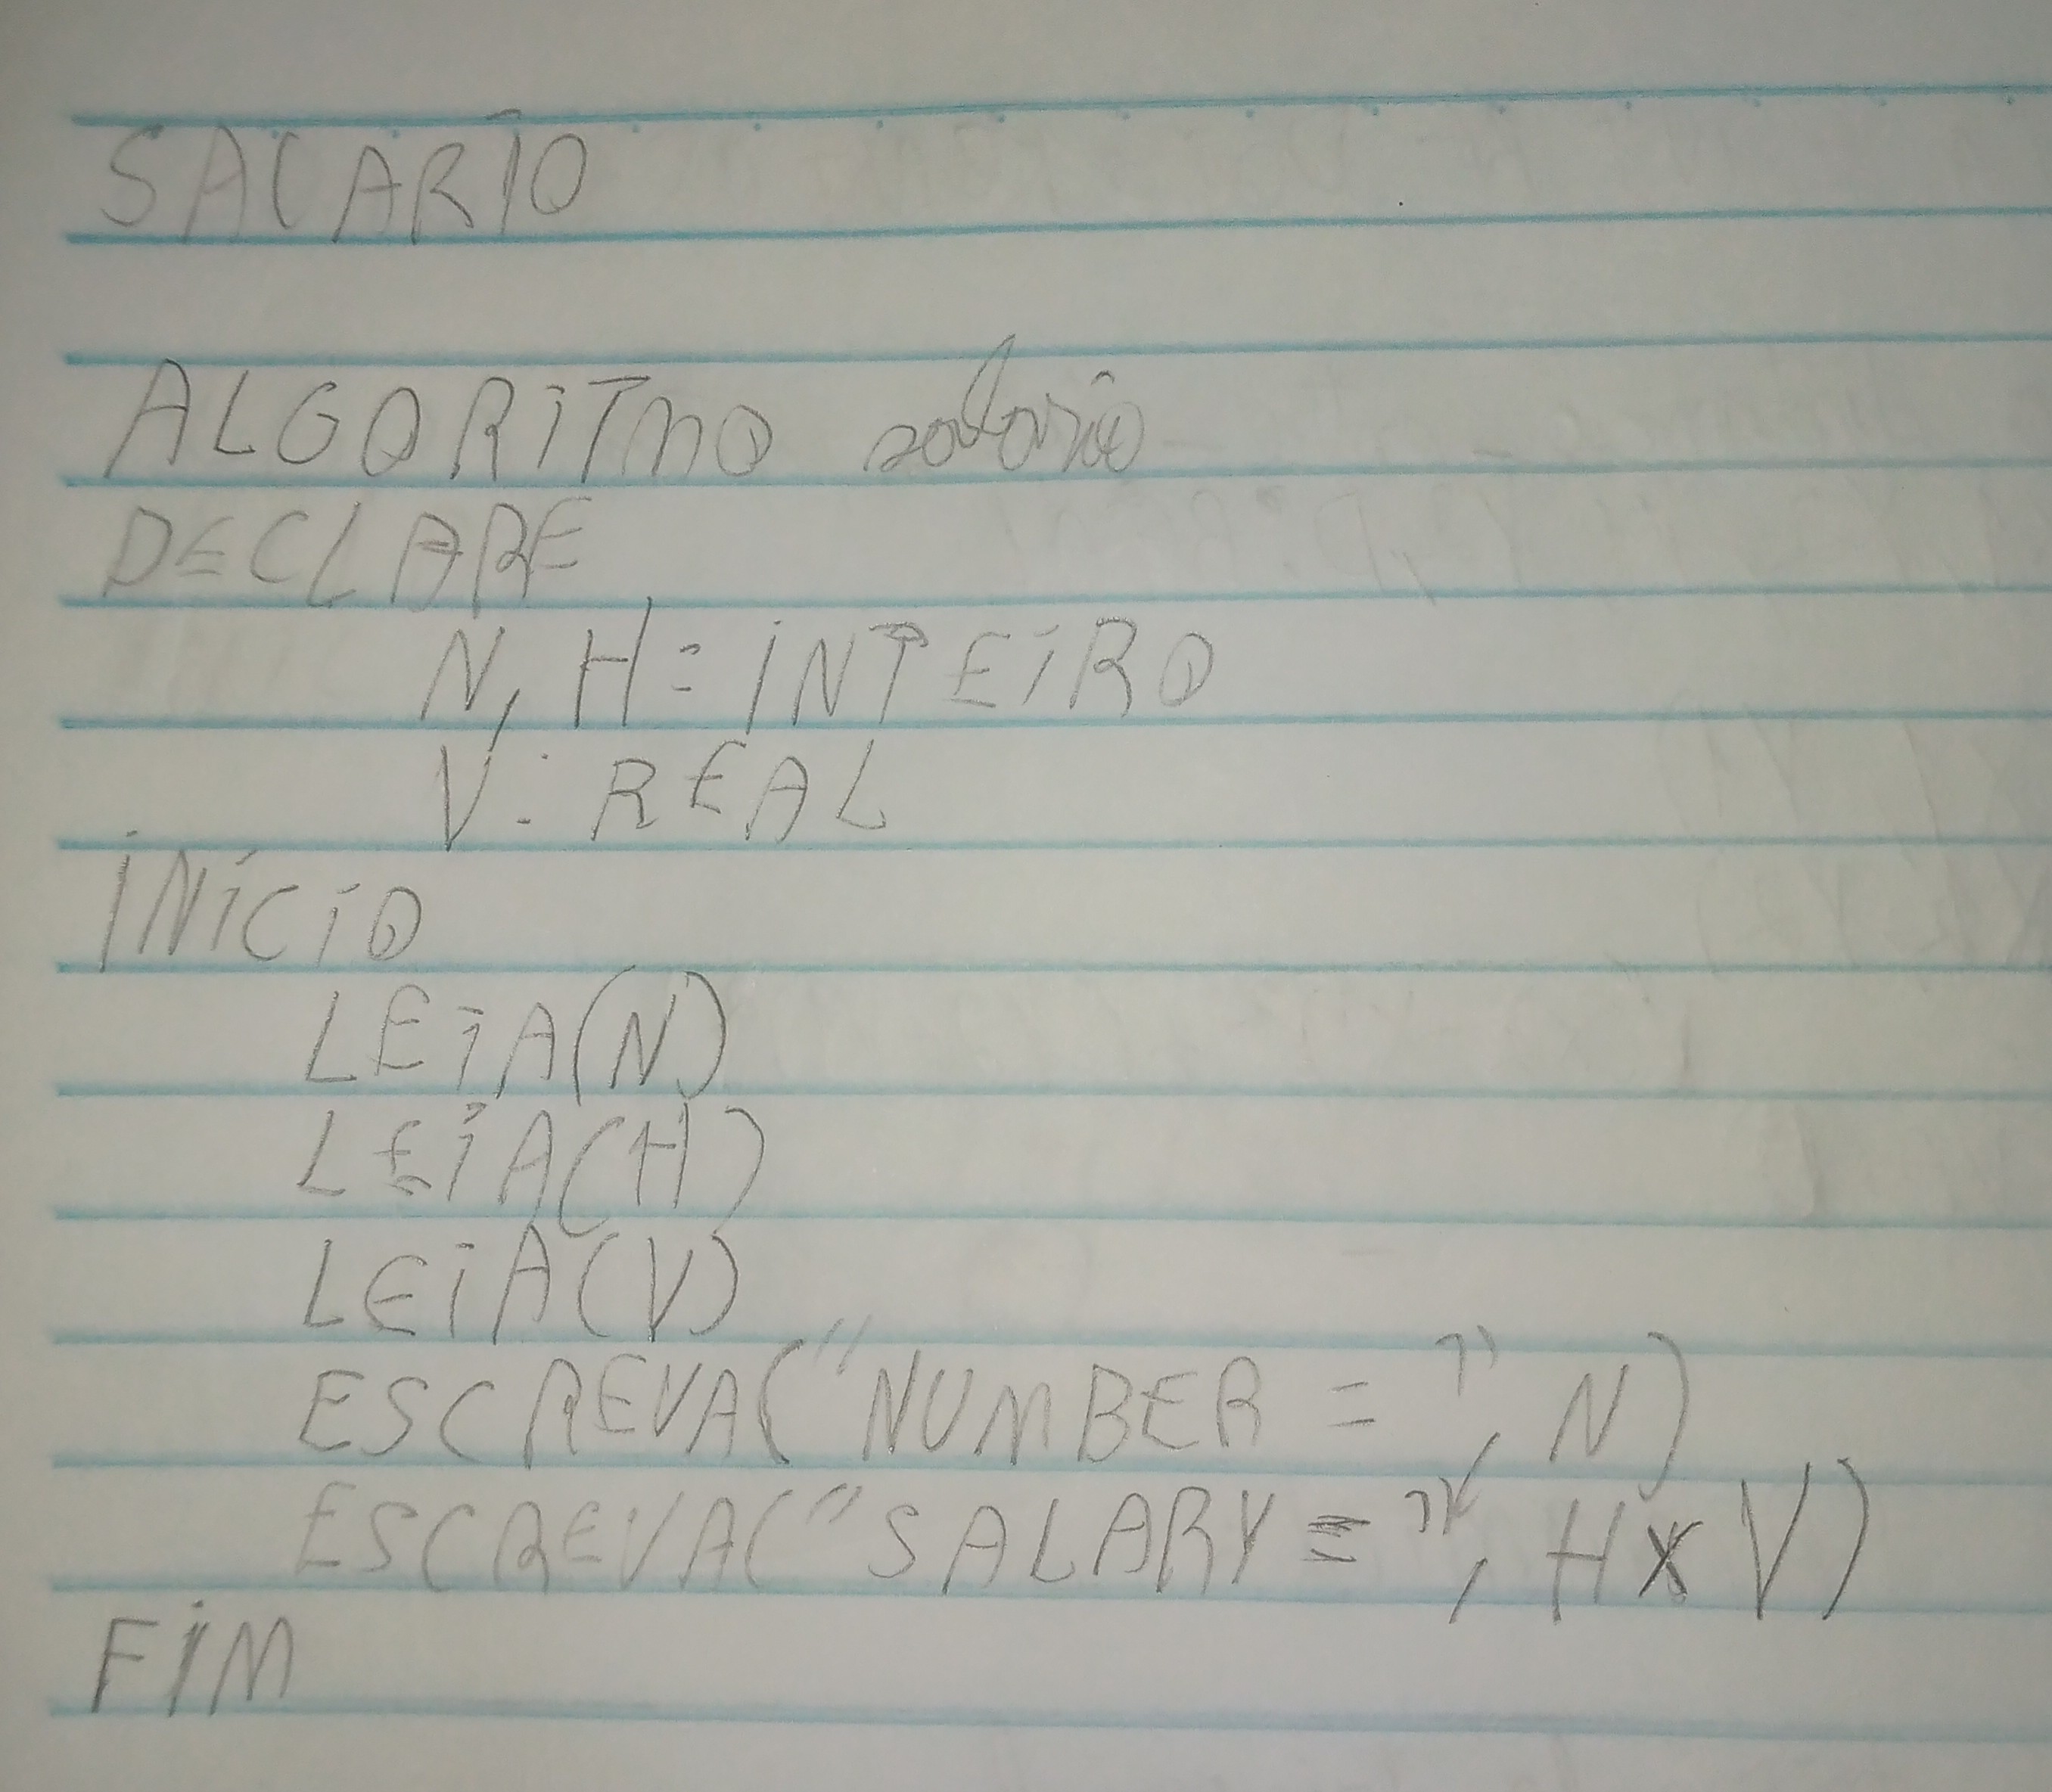 SALARIO
ALGORITMO salario
DECLARE
N, H: INTEIRO
V: REAL
INICIO
LEIA(N)
LEIA(H)
LEIA(V)
ESCREVA("NUMBER = ", N)
ESCREVA("SALARY = ", H x V)
FIM